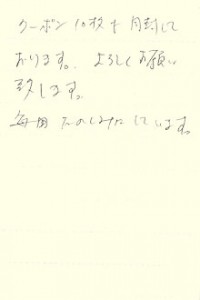 クーポン10枚を同封して
おります。よろしくお願い
致します。
毎回たのしみにしています。